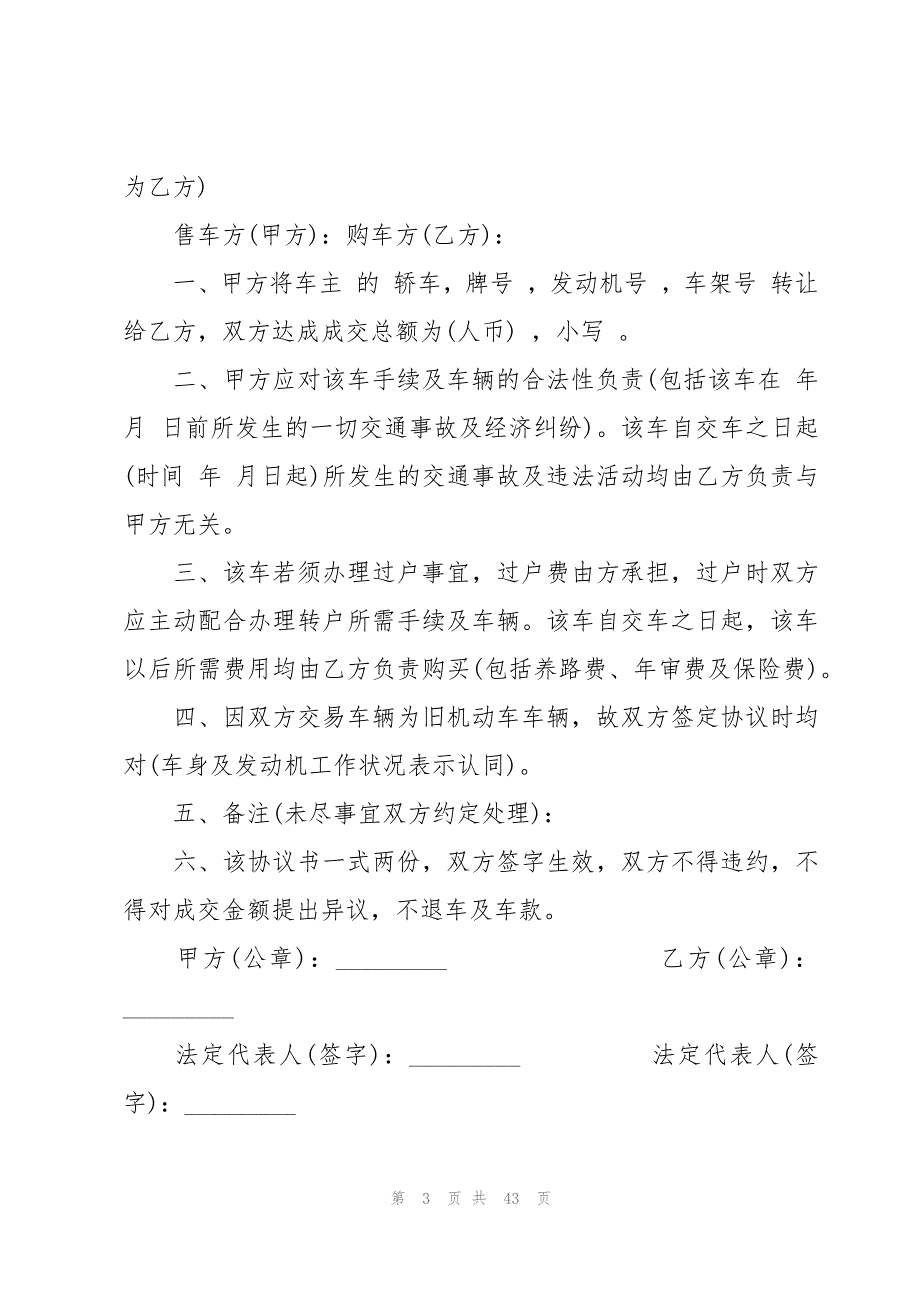 为乙方)
售车方(甲方)：购车方(乙方)：
一、甲方将车主 的 轿车，牌号 ，发动机号 ，车架号 转让
给乙方，双方达成成交总额为(人币) ，小写 。
二、甲方应对该车手续及车辆的合法性负责(包括该车在 年
月 日前所发生的一切交通事故及经济纠纷)。该车自交车之日起
(时间 年 月日起)所发生的交通事故及违法活动均由乙方负责与
甲方无关。
三、该车若须办理过户事宜，过户费由方承担，过户时双方
应主动配合办理转户所需手续及车辆。该车自交车之日起，该车
以后所需费用均由乙方负责购买(包括养路费、年审费及保险费)。
四、因双方交易车辆为旧机动车车辆，故双方签定协议时均
对(车身及发动机工作状况表示认同)。
五、备注(未尽事宜双方约定处理)：
六、该协议书一式两份，双方签字生效，双方不得违约，不
得对成交金额提出异议，不退车及车款。
甲方(公章)：_________ 乙方(公章)：
_________
法定代表人(签字)：_________ 法定代表人(签
字)：_________
第 3 页 共 43 页